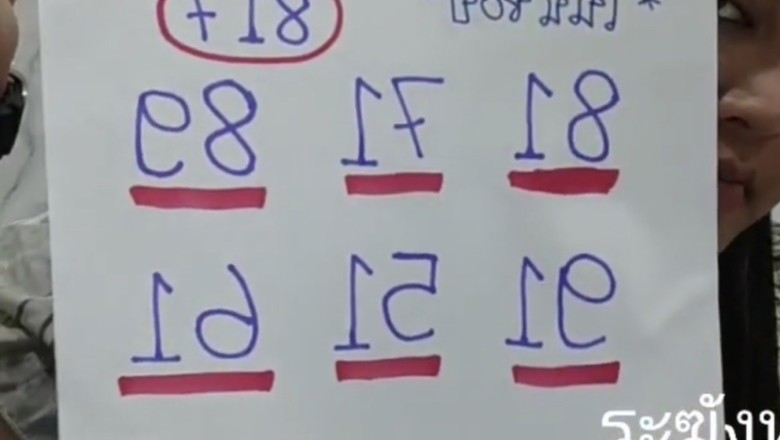 817
81 71 89
91 51 61
ระฆัง